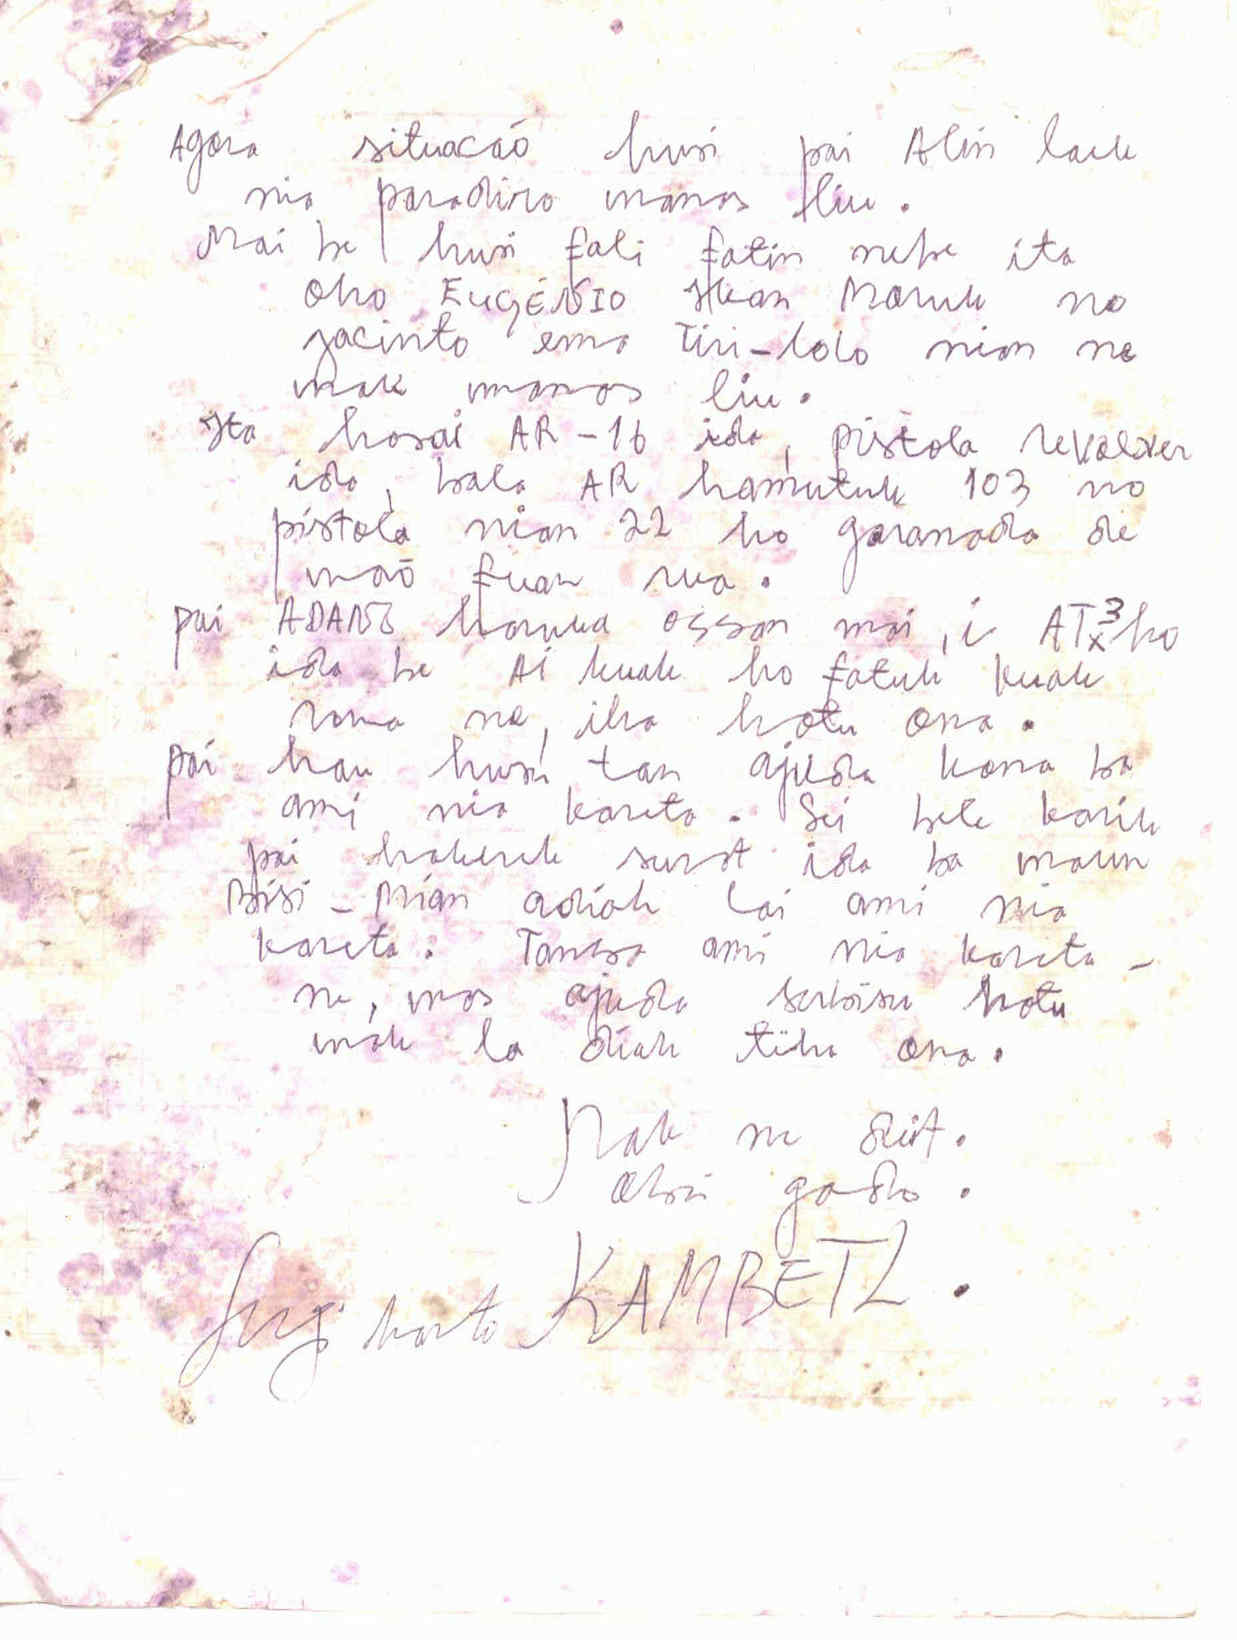 Agora situacão husi pai Alin laek
nia paradiro manas liu.
Mai be husi fali fatin nebe ita
oho EUGÉNIO Maruk no
jacinto ema Tiri-lolo nian ne
mak manas liu.
Ita hasai AR-16 ida, pistola revalver
ida, bala AR hamutuk 103 no
pistola nian 22 ho garanada de
mão fuan rua.
pai ADANS haruka ossan mai, i ATx3 ho
ida be Ai kuak ho fatuk kuak
roma ne, iha hotu ona.
pai hau husu tan ajuda kona ba
ami nia kareta. Sei bele karik
pai hakerek surat ida ba maun
Bisi-Mian adiak lai ami nia
kareta. Tanba ami nia kareta-
ne, mos ajuda serbisu hotu
mak la diak tiha ona.
Mak ne deit.
Obri gado.
KAMBETL.